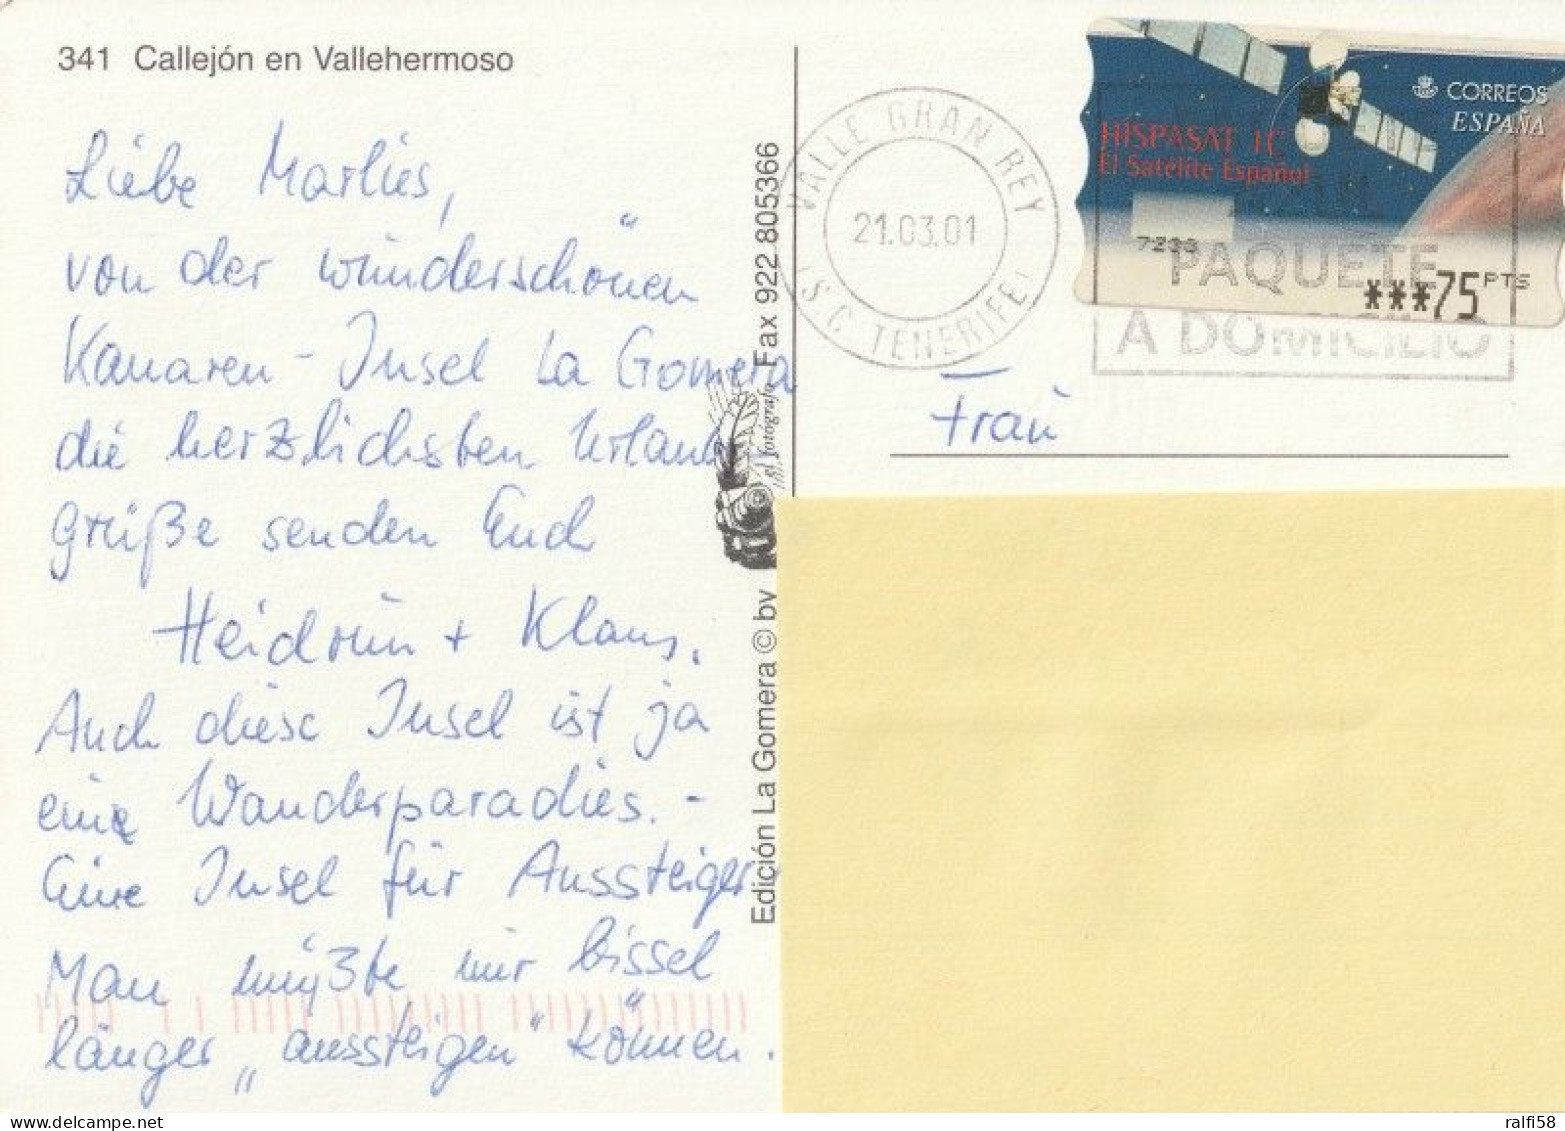 341 Callejón en Vallehermoso
Liebe Marlies,
von der wunderschönen
Kanaren-Insel La Gomera
die herzlichsten Urlaubs
grüße senden Euch
Heidrun + Klaus.
Auch diese Insel ist ja
eine Wanderparadies. -
Eine Insel für Aussteiger.
Man müßte nur bissel
länger „aussteigen“ können.
Edición La Gomera © by
fotógrafo
Fax 922.805366
VALLE GRAN REY
21.03.01
(S.C. TENERIFE)
CORREOS
ESPAÑA
HISPASAT 1C
El Satélite Español
7233
PAQUETE
***75 PTS
A DOMICILIO
Frau
ralfi58